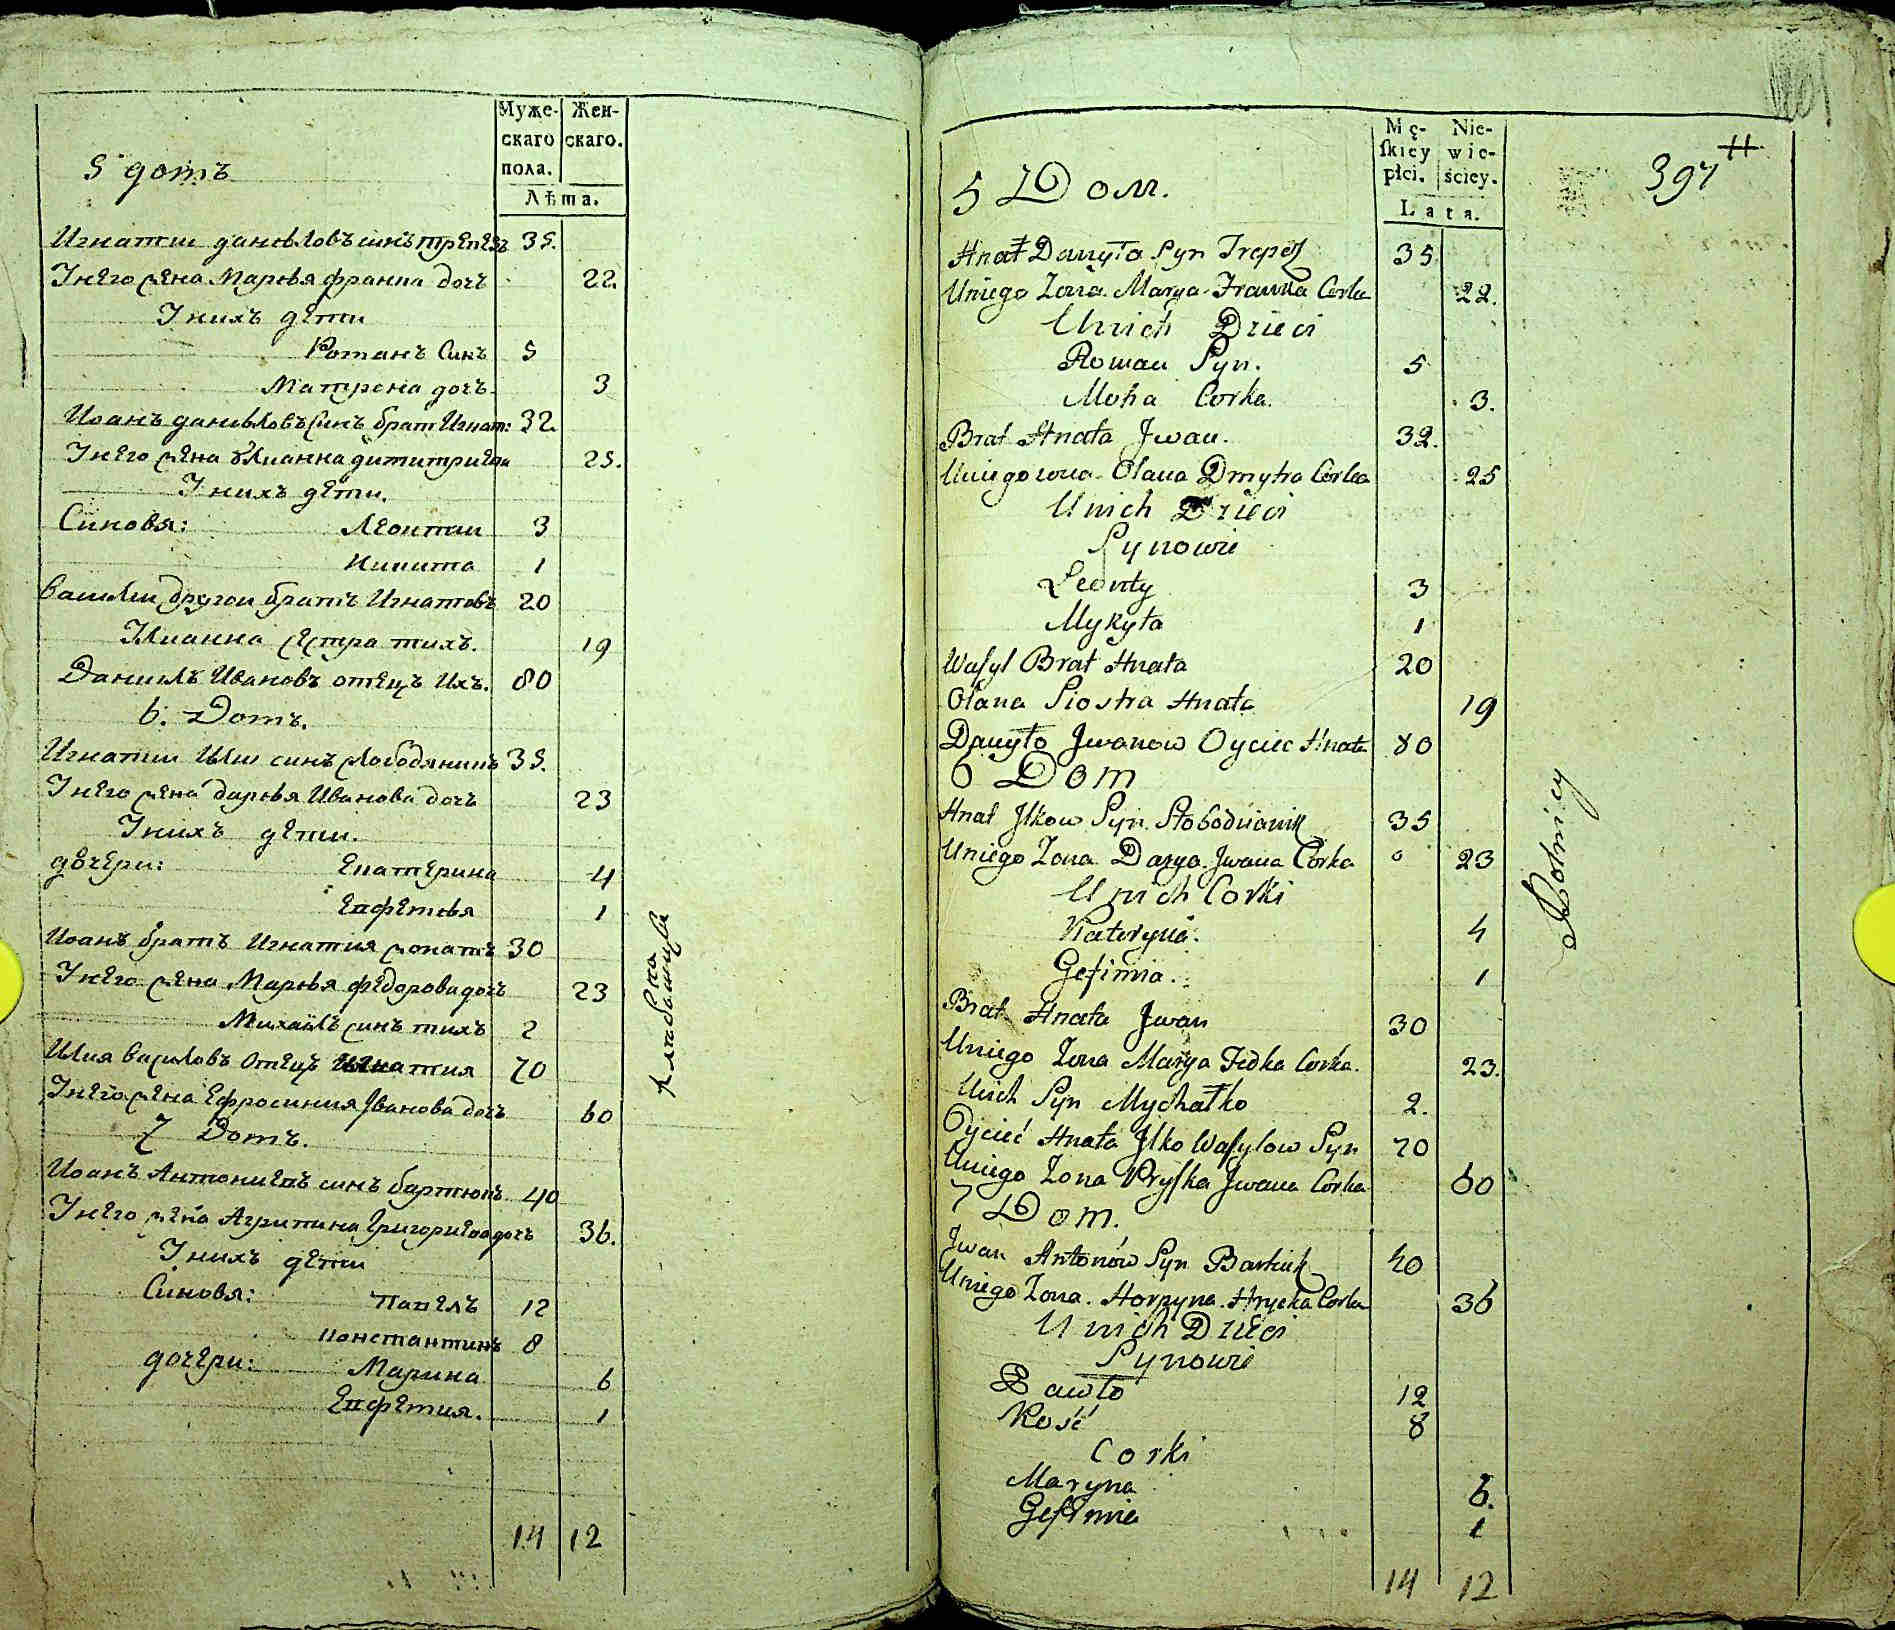 Муже- Жен-
скаго скаго.
пола.
Лѣта.
5 домъ
Игнатии даниловъ синъ трепезъ 35.
Тнего жена Марья франка дочъ 22.
Тнихъ дети
Романъ Синъ 5
Матрона дочъ 3
Иоанъ даниловъ Синъ братъ Игнат: 32.
Тнего жена Улианна димитриева 25.
Тнихъ дети.
Синовя: Леонтии 3
Никита 1
Василии другои братъ Игнатовъ 20
Улианна сестра тихъ. 19
Даниилъ Ивановъ отецъ Ихъ. 80
6. Домъ.
Игнатии Илии синъ слободянинъ 35.
Тнего жена дарья Иванова дочъ 23
Тнихъ дети.
дочери: Екатерина 4
Евфемья 1
Иоанъ братъ Игнатия 30
Тнего жена Марья федорова дочъ 23
Михаилъ синъ тихъ 2
Илия василовъ отецъ Игнатия 70
Тнего жена Ефросиния Иванова дочъ 60
7 Домъ.
Иоанъ Антониевъ синъ бартюкъ 40
Тнего жена Агрипина Григориева дочъ 36.
Тнихъ дети
Синовя: Павелъ 12
Константинъ 8
дочери: Марина 6
Евфемия. 1
14 12
Mę- Nie-
skiey wie-
płci. ściey.
Lata.
397
5 Dom.
Hnat Danyło Syn Trepez 35
Uniego Zona Marya Franka Corka 22.
Unich Dzieci
Roman Syn. 5
Motra Corka. 3.
Brat Hnata Jwan. 32.
Uniego zona Olana Dmytra Corka 25
Unich Dzieci
Synowie
Leonty 3
Mykyta 1
Wasyl Brat Hnata 20
Olana Siostra Hnata 19
Danyło Jwanow Oyciec Hnata 80
6 Dom
Hnat Jlkow Syn Słobodianik 35
Uniego Zona Darya Jwana Corka 23
Unich Corki
Kateryna. 4
Gefimia. 1
Brat Hnata Jwan 30
Uniego Zona Marya Fedka Corka. 23.
Unich Syn Mychałko 2.
Oyciec Hnata Jlko Wasylow Syn 70
Uniego Zona Pryska Jwana Corka 60
7 Dom.
Jwan Antonów Syn Bartiuk 40
Uniego Zona Horpyna Hrycka Corka 36
Unich Dzieci
Synowie
Pawło 12
Kość 8
Corki
Maryna 6.
Gefimia 1
14 12
Rolnicy